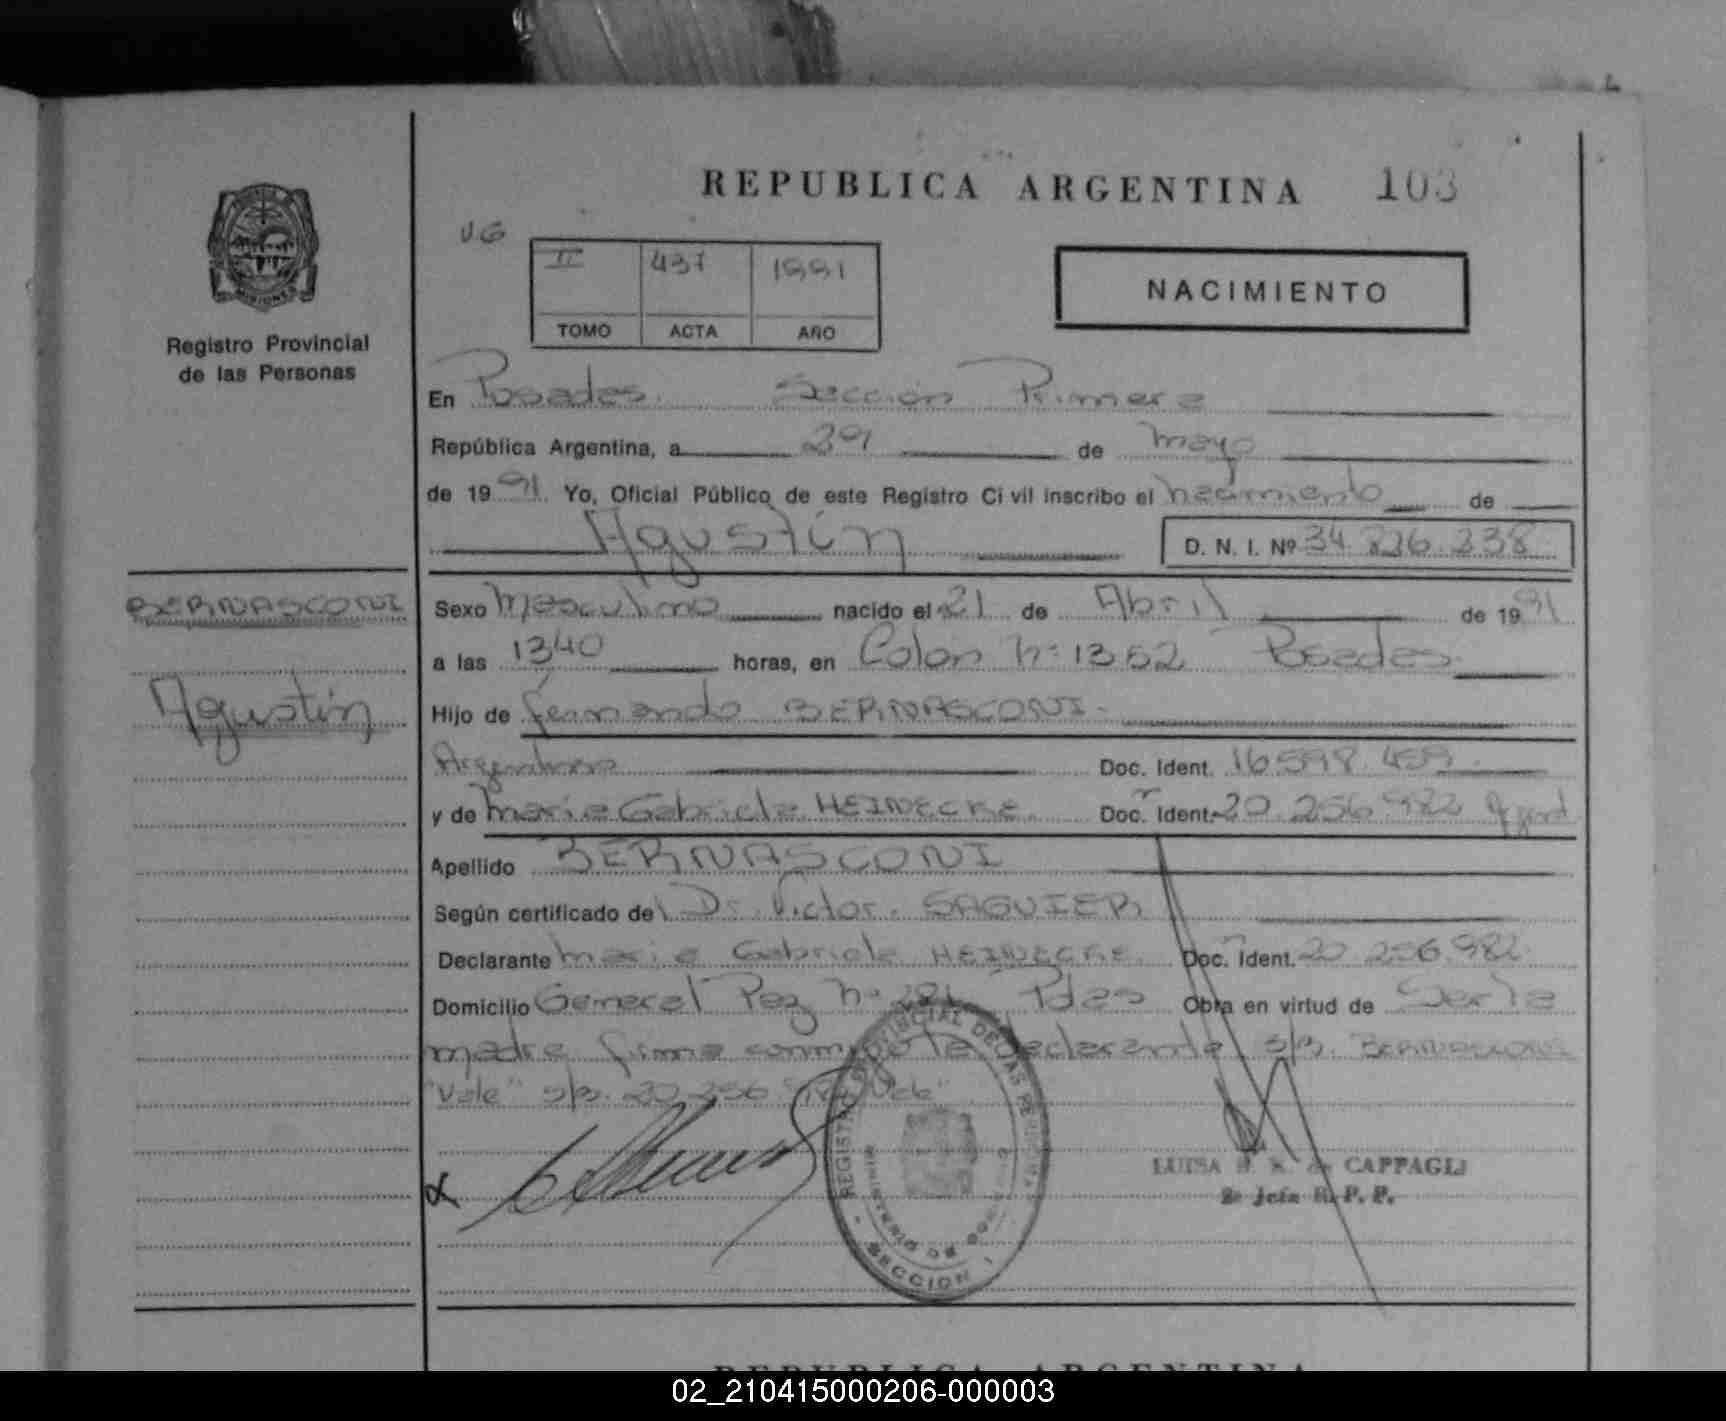 REPUBLICA ARGENTINA 103
UG
II 437 1991
TOMO ACTA AÑO
NACIMIENTO
MISIONES
Registro Provincial
de las Personas
En Posadas. Sección Primera
República Argentina, a 29 de mayo
de 1991. Yo, Oficial Público de este Registro Civil inscribo el nacimiento de
Agustín D. N. I. Nº 34.826.338
BERNASCONI
Agustín
Sexo Masculino nacido el 21 de Abril de 1991
a las 1340 horas, en Colón Nº 1352 Posadas.
Hijo de Fernando BERNASCONI.
Argentino Doc. Ident. 16.598.459
y de Maria Gabriela HEINECKE. Doc. Ident. 20.256.982
Apellido BERNASCONI
Según certificado del Dr. Victor SAGUIER
Declarante Maria Gabriela HEINECKE. Doc. Ident. 20.256.982
Domicilio General Paz Nº 281 Pdas Obra en virtud de Ser la
madre firma conmigo la declarante s/r. BERNASCONI
"Vale" s/r. 20.256 Vale"
REGISTRO PROVINCIAL DE LAS PERSONAS
MINISTERIO DE GOBIERNO
SECCION 1
LUISA de CAPPAGLI
2º Jefe R. P. P.
REPUBLICA ARGENTINA
02_210415000206-000003